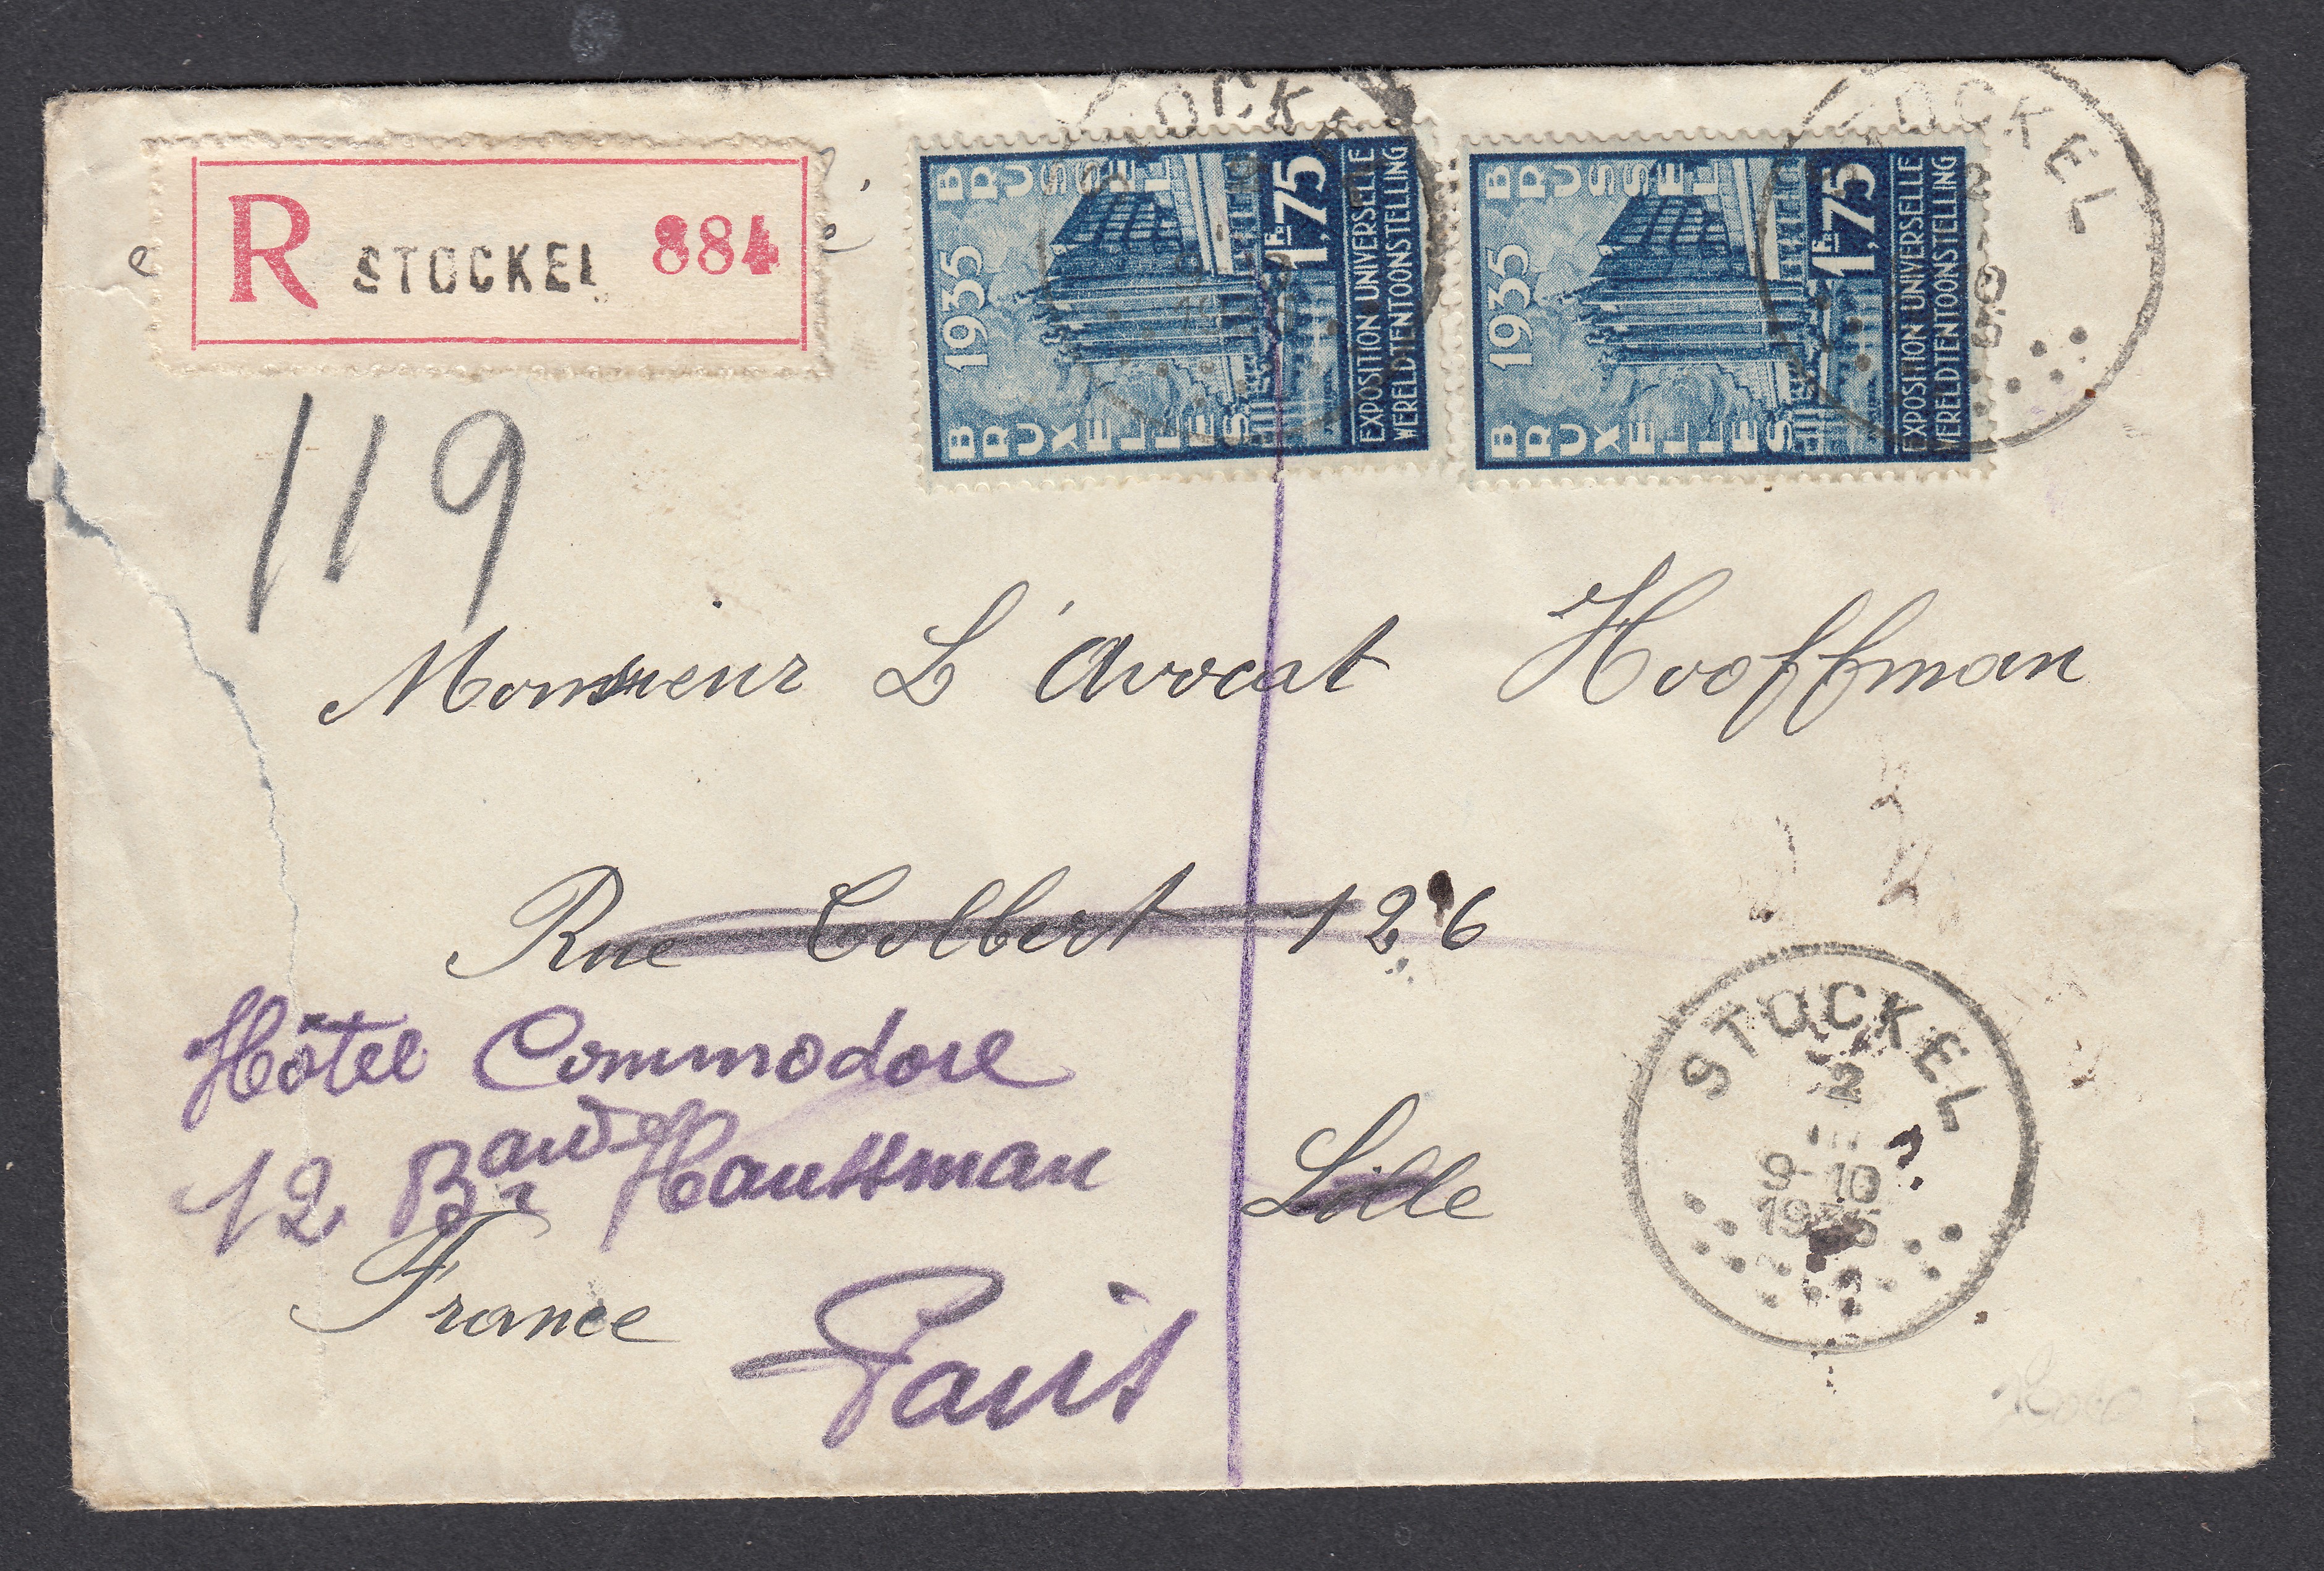 R STOCKEL 884
BRUSSEL
1935
BRUXELLES
1F.75
EXPOSITION UNIVERSELLE
WERELDTENTOONSTELLING
BRUSSEL
1935
BRUXELLES
1F.75
EXPOSITION UNIVERSELLE
WERELDTENTOONSTELLING
STOCKEL
STOCKEL
119
Monsieur L'Avocat Hooffman
Rue Colbert 126
Hôtel Commodore
12 Bd Haussman
Lille
France
Paris
STOCKEL
2
9-10
1935